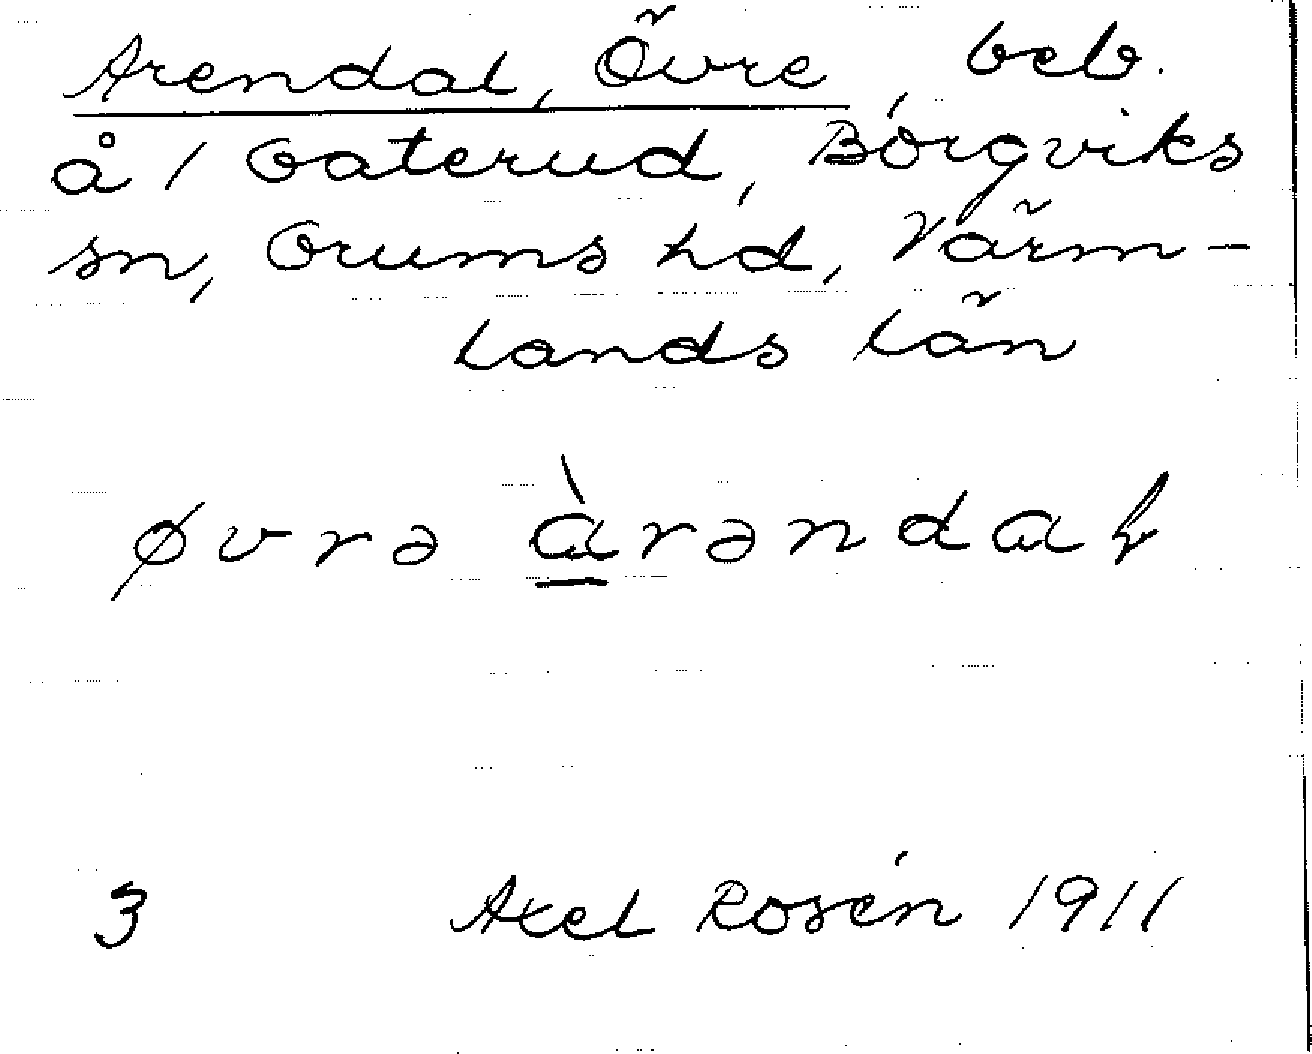 Arendal, Övre, beb.
å 1 Gaterud, Borgviks
sn, Grums hd, Värm-
lands län
øvrə àrəndaɽ
3 Axel Rosén 1911